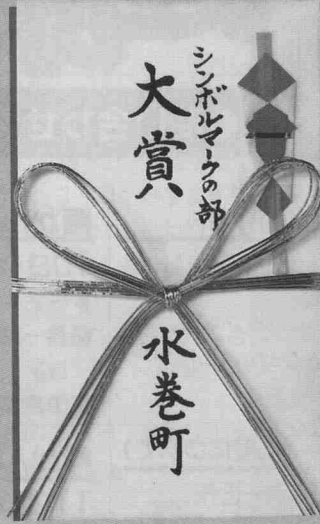 シンボルマークの部
大賞
水巻町